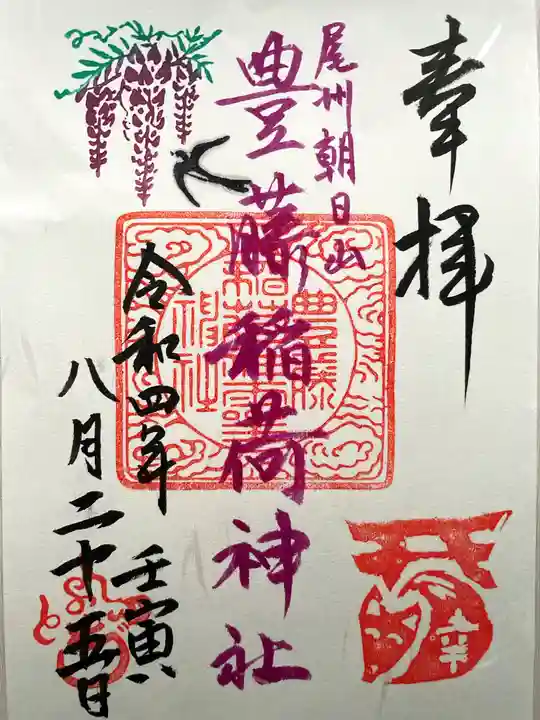 奉拝
尾州朝日山
豊藤稲荷神社
令和四年 壬寅
八月二十五日
豊藤
稲荷
神社